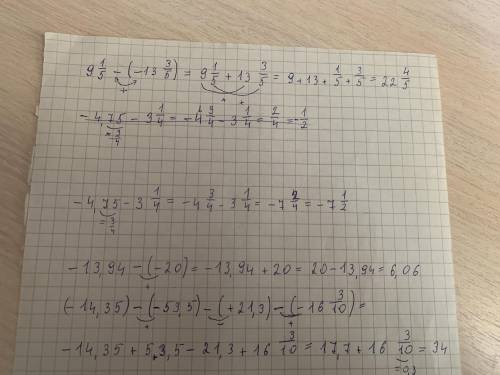 9 1/5 - (-13 3/5) = 9 1/5 + 13 3/5 = 9 + 13 + 1/5 + 3/5 = 22 4/5
+ + +
- 4,75 - 3 1/4 = -4 3/4 - 3 1/4 = 2/4 = -1/2
= 3/4
- 4,75 - 3 1/4 = -4 3/4 - 3 1/4 = -7 2/4 = -7 1/2
= 3/4
- 13,94 - (-20) = -13,94 + 20 = 20 - 13,94 = 6,06
+
(-14,35) - (-53,5) - (+21,3) - (-16 3/10) =
+ - +
- 14,35 + 53,5 - 21,3 + 16 3/10 = 17,7 + 16 3/10 = 34
= 0,3